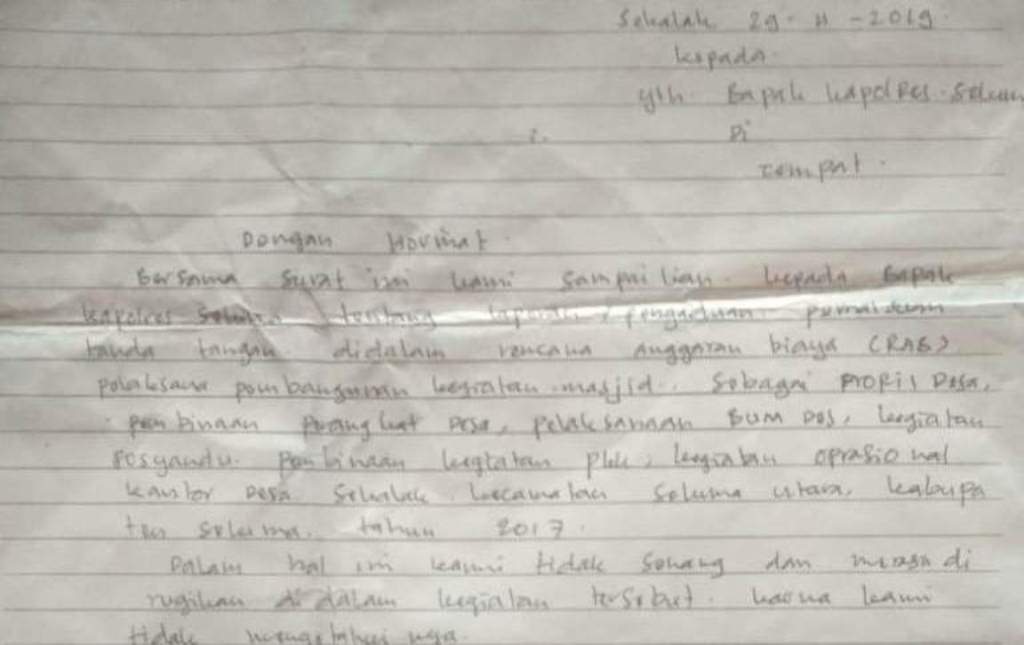 Sekalak 29-11-2019.
kepada.
yth. Bapak kapolres. Selum
Di
Tempat.
Dengan Hormat.
Bersama surat ini kami sampaikan kepada Bapak
kapolres Seluma tentang laporan / pengaduan pemalsuan
tanda tangan didalam rencana anggaran biaya (RAB)
pelaksana pembangunan kegiatan masjid. Sebagai Propil Desa,
pembinaan perangkat Desa, pelaksanaan BUM Des, kegiatan
Posyandu. pembinaan kegiatan pkk, kegiatan oprasional
kantor Desa Sekalak kecamatan Seluma utara, kabupa
ten Seluma. tahun 2017.
Dalam hal ini kami tidak senang dan merasa di
rugikan di dalam kegiatan tersebut. karna kami
tidak mengetahui nya.